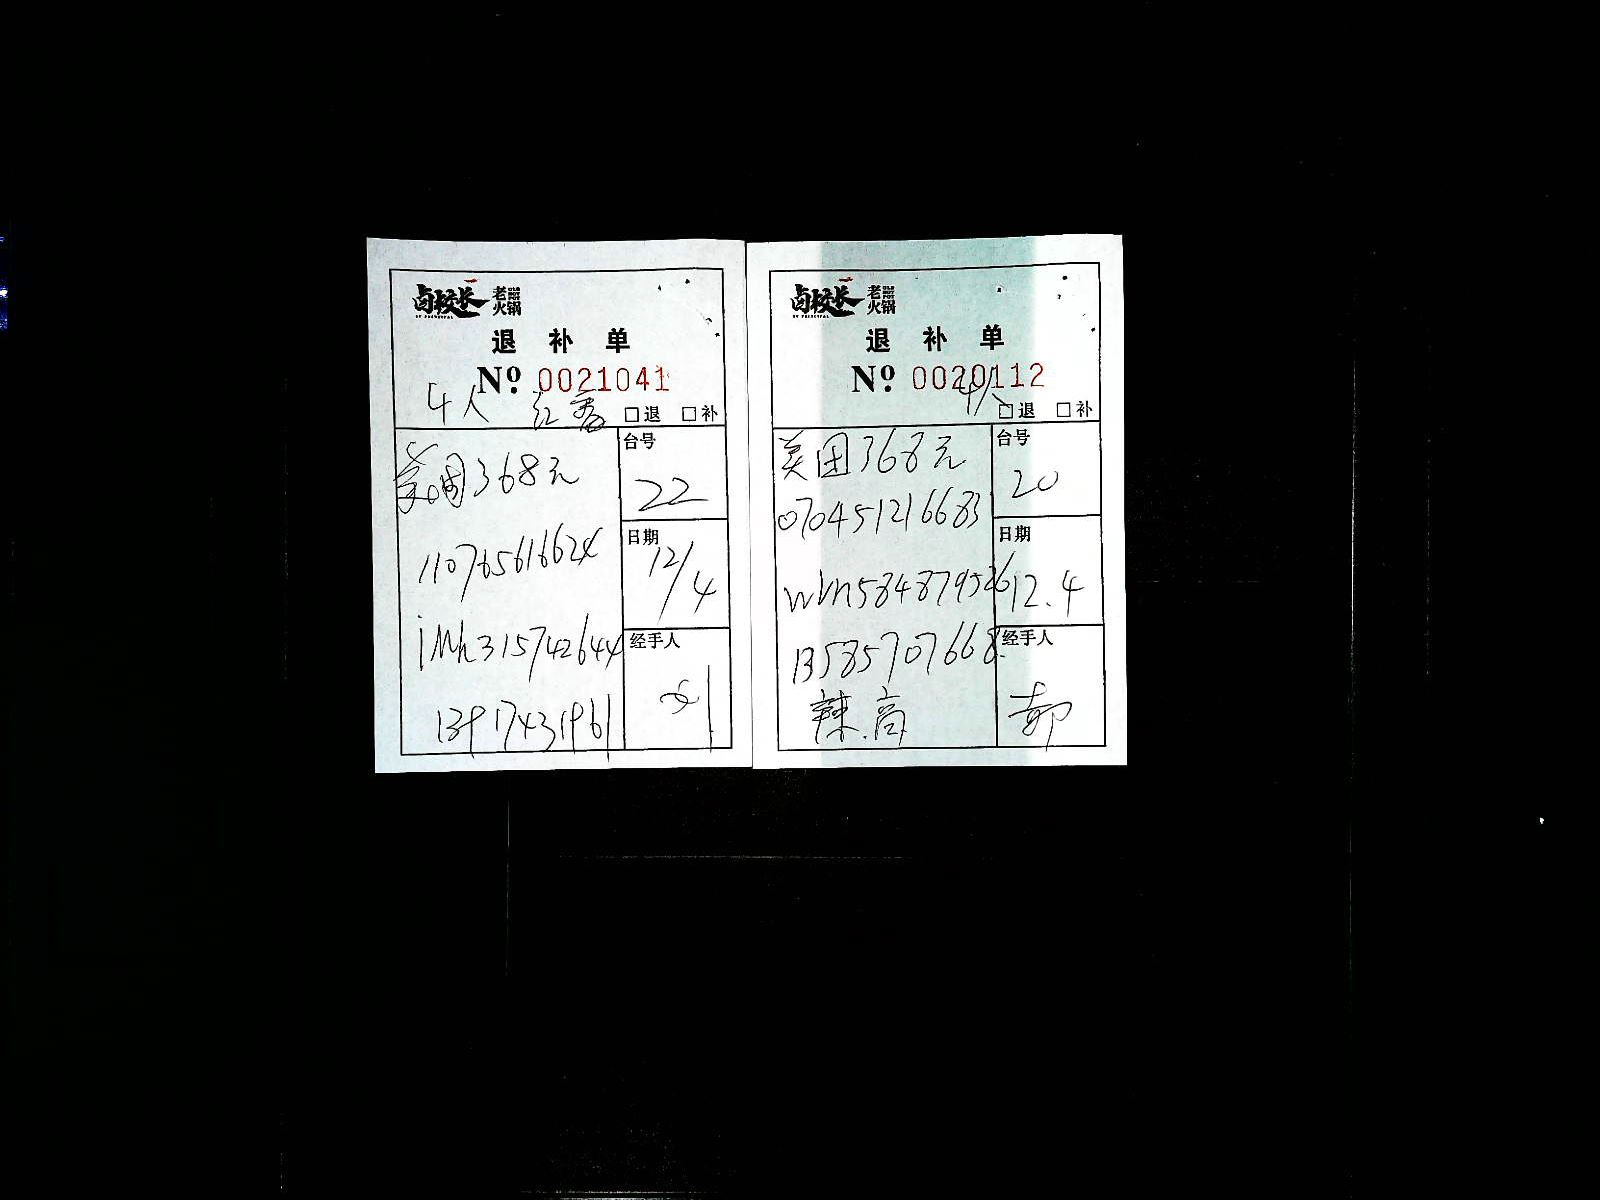 卤校长 老火锅
退 补 单
Nº. 0021041
4人 红 香 □退 □补
美团368元
台号
22
110765616624
日期
12/4
iMh315742644
经手人
13917431961
卤校长 老火锅
退 补 单
Nº. 0020112
4人 □退 □补
美团368元
台号
20
070451216683
日期
12.4
wVn584879526
经手人
13585707668
辣.高
郭